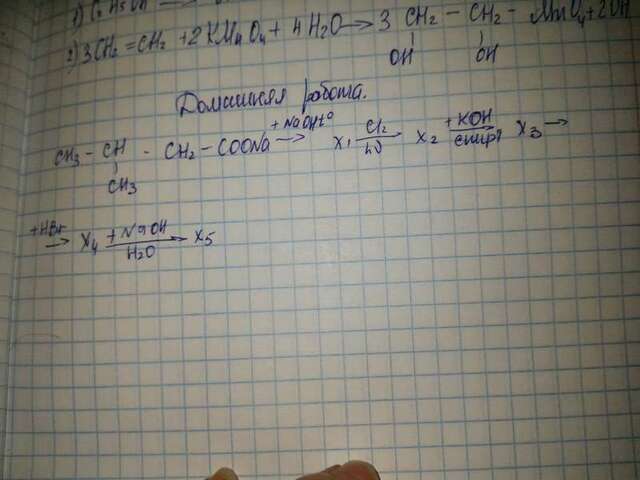 1) C₂H₅OH →
2) 3CH₂ = CH₂ + 2KMnO₄ + 4H₂O → 3 CH₂ - CH₂ - MnO₄ + 2OH
OH OH
Домашняя работа.
CH₃ - CH - CH₂ - COONa + NaOH t° → X₁ Cl₂ hν → X₂ + KOH спирт → X₃ →
CH₃
+HBr → X₄ + NaOH H₂O → X₅